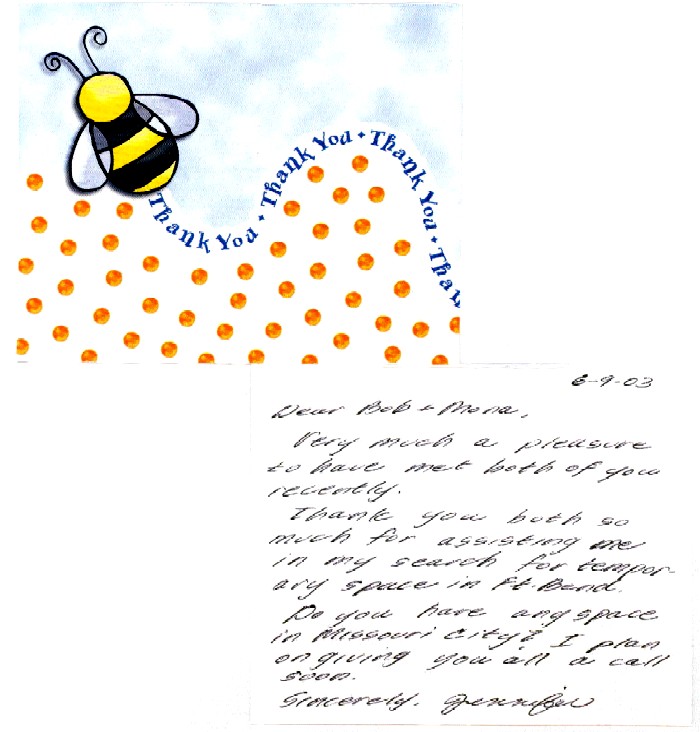 Thank You • Thank You • Thank You • Than
6-9-03
Dear Bob & Mona,
Very much a pleasure
to have met both of you
recently.
Thank you both so
much for assisting me
in my search for tempor-
ary space in Ft. Bend.
Do you have any space
in Missouri City? I plan
on giving you all a call
soon.
Sincerely, Jennifer